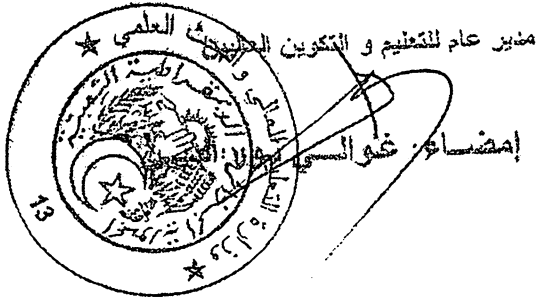 مدير عام للتعليم و التكوين العاليين
إمضاء: غوالسي
وزارة التعليم العالي و البحث العلمي
الجمهورية الجزائرية الديمقراطية الشعبية
13